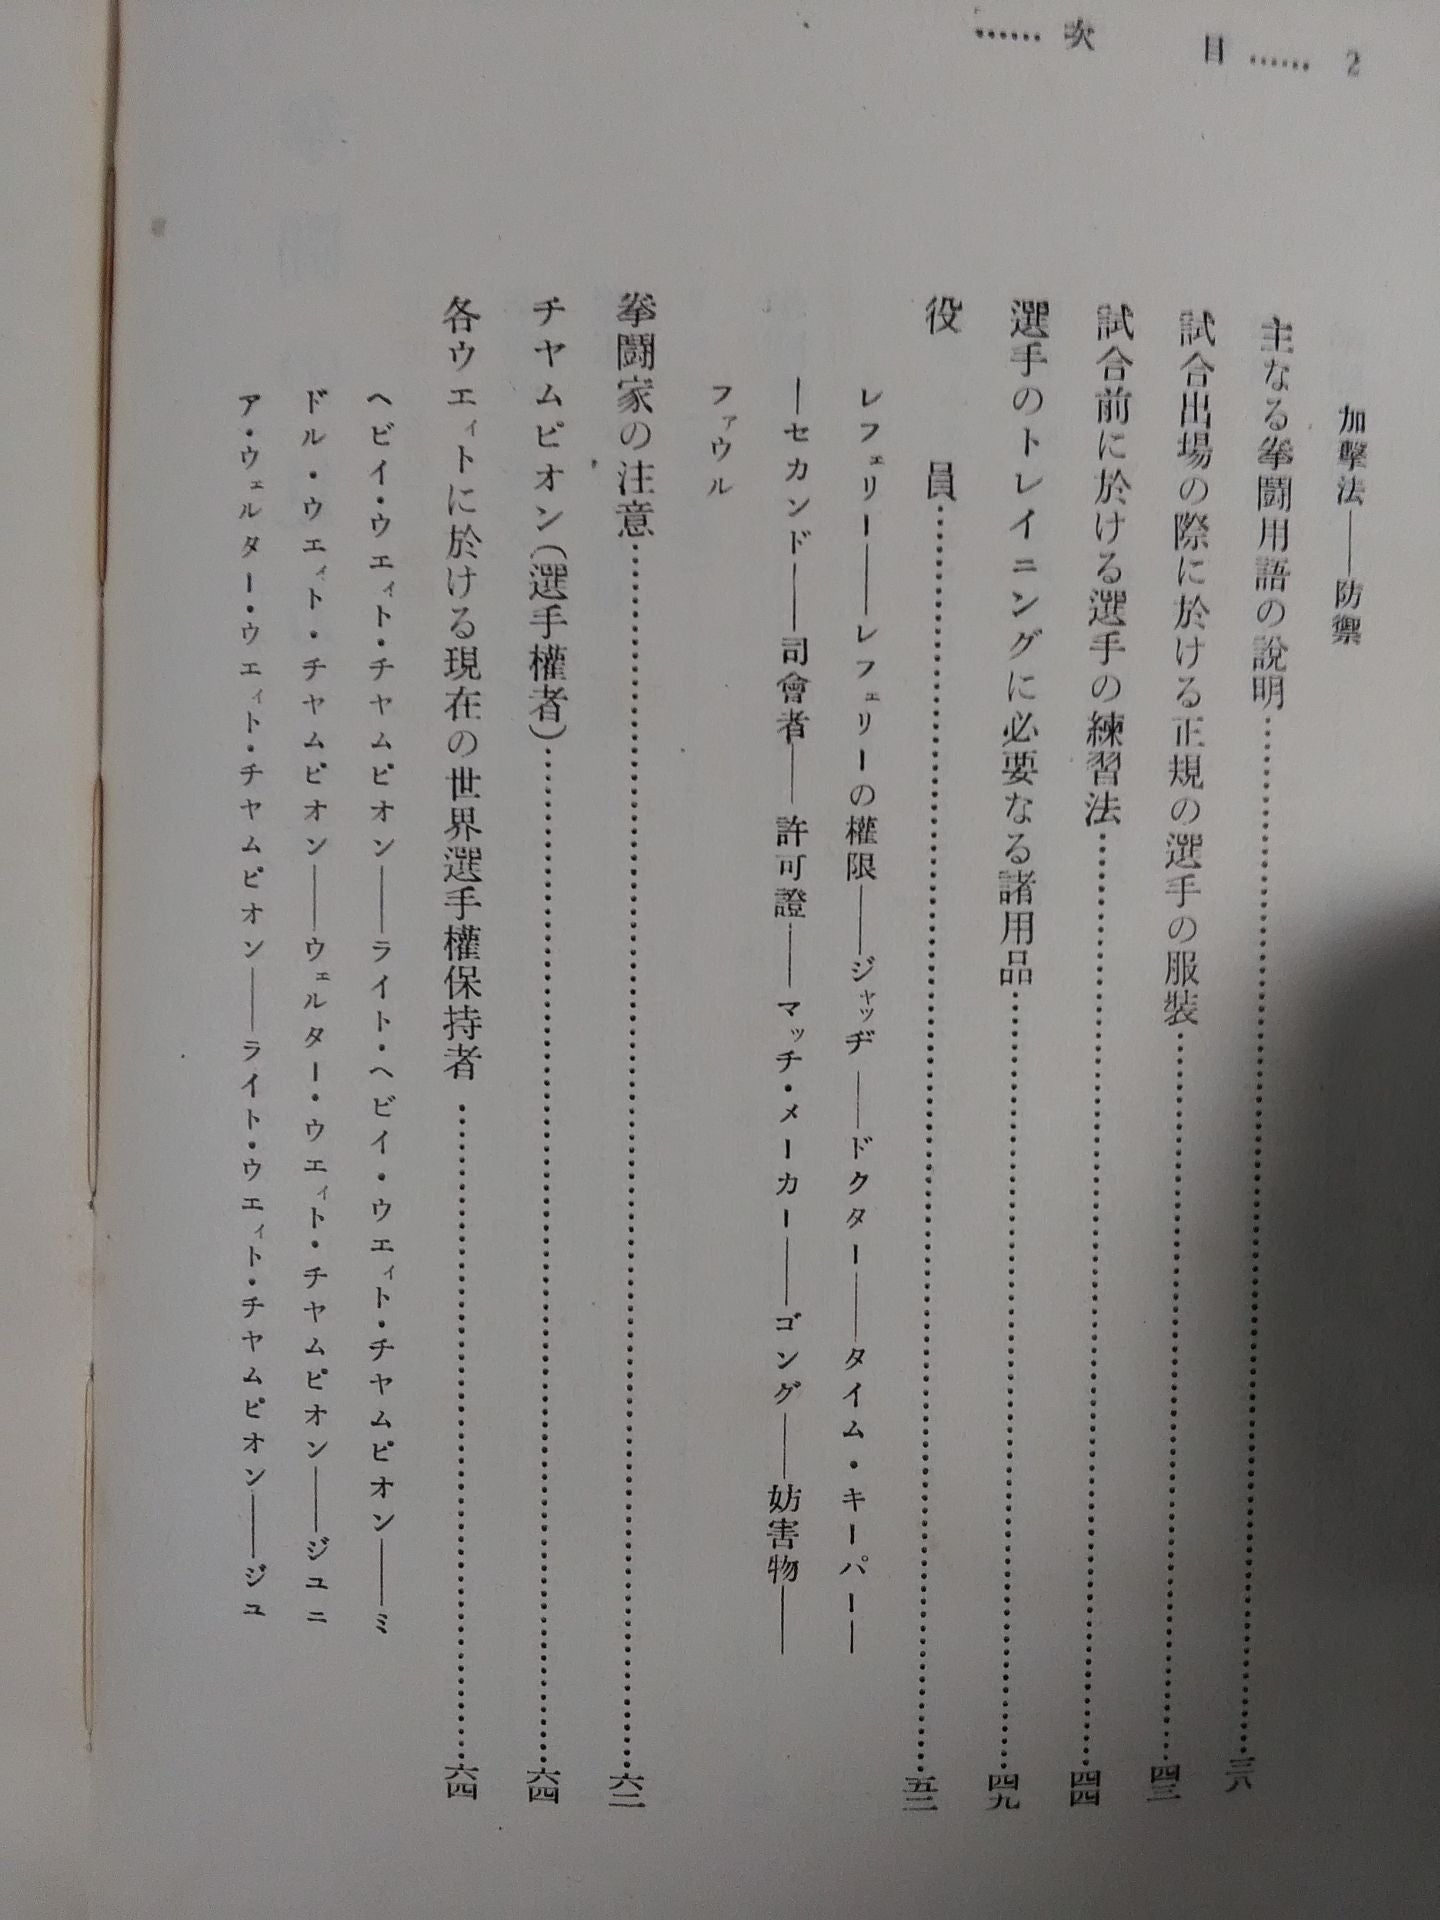 2 …… 目 次 ……
加擊法――防禦
主なる拳鬪用語の說明……三八
試合出場の際に於ける正規の選手の服裝……四三
試合前に於ける選手の練習法……四四
選手のトレイニングに必要なる諸用品……四九
役 員……五二
レフェリー――レフェリーの權限――ジャッヂ――ドクター――タイム・キーパー―
―セカンド――司會者――許可證――マッチ・メーカー――ゴング――妨害物――
ファウル
拳鬪家の注意……六二
チヤムピオン(選手權者)……六四
各ウエィトに於ける現在の世界選手權保持者……六四
ヘビイ・ウエィト・チヤムピオン――ライト・ヘビイ・ウエィト・チヤムピオン――ミ
ドル・ウエィト・チヤムピオン――ウェルター・ウエィト・チヤムピオン――ジユニ
ア・ウェルター・ウエィト・チヤムピオン――ライト・ウエィト・チヤムピオン――ジユ